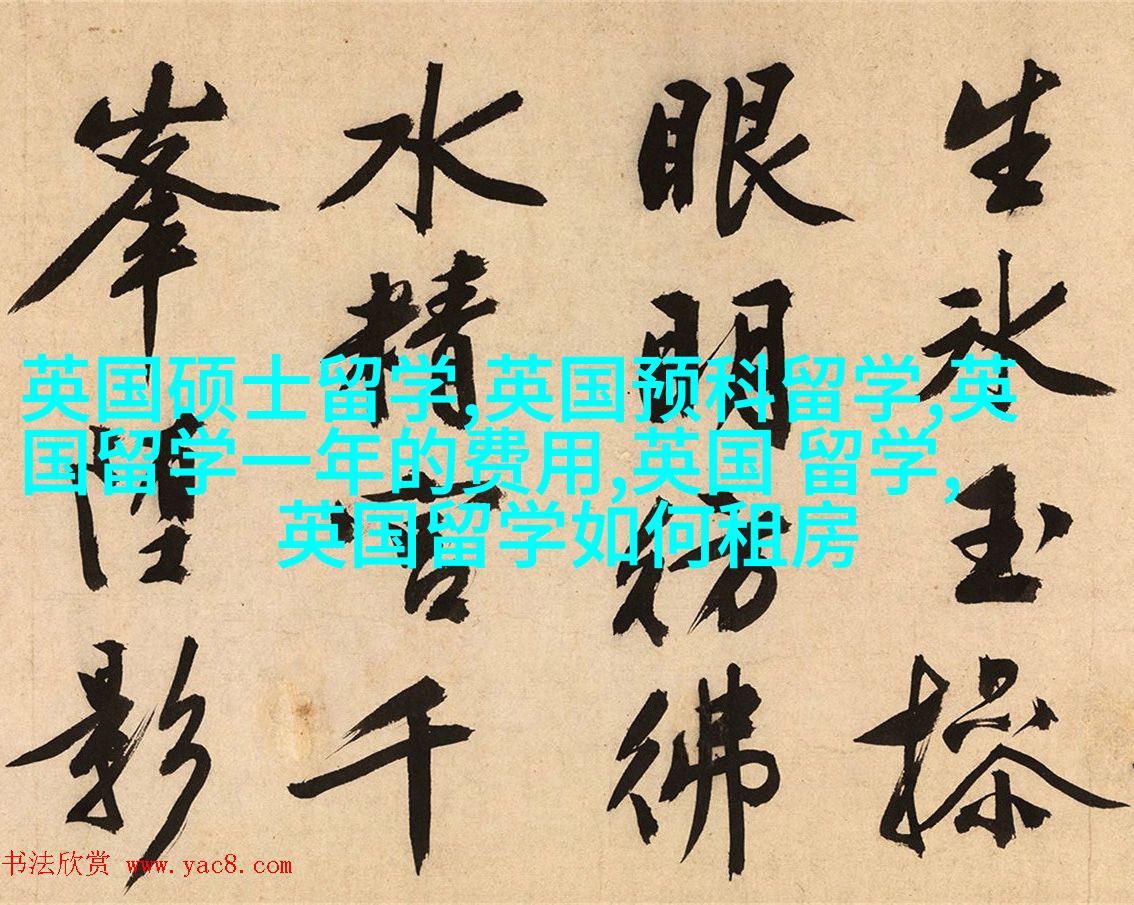 生氷玉操
眼明彷彿
水精宮千
峯墮影
英国硕士留学,英国预科留学,英
国留学一年的费用,英国 留学,
英国留学如何租房
书法欣赏 www.yac8.com